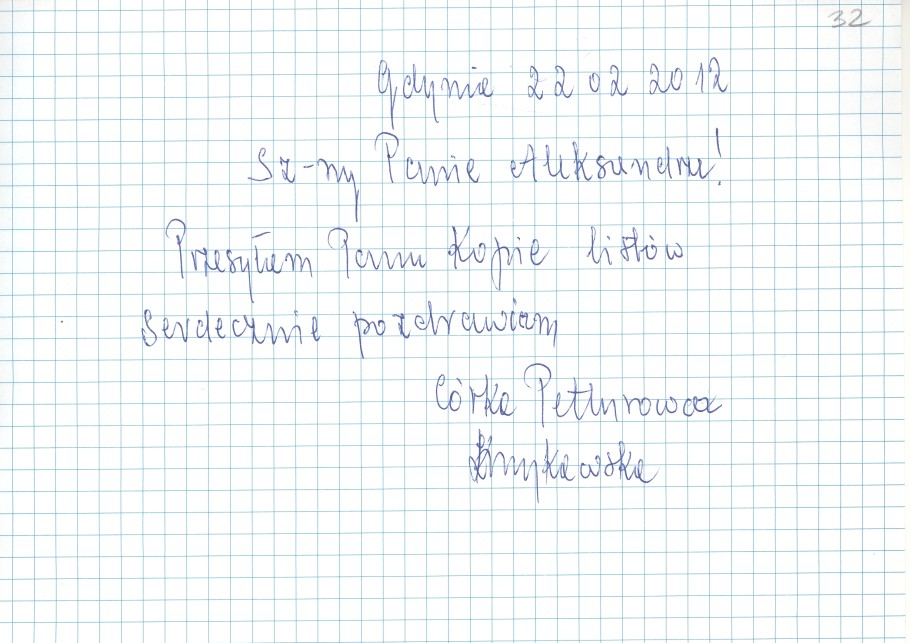 32
Gdynia 22 02 2012
Sz-ny Panie Aleksandrze!
Przesyłam Panu kopie listów
Serdecznie pozdrawiam
Córka Petlurowca